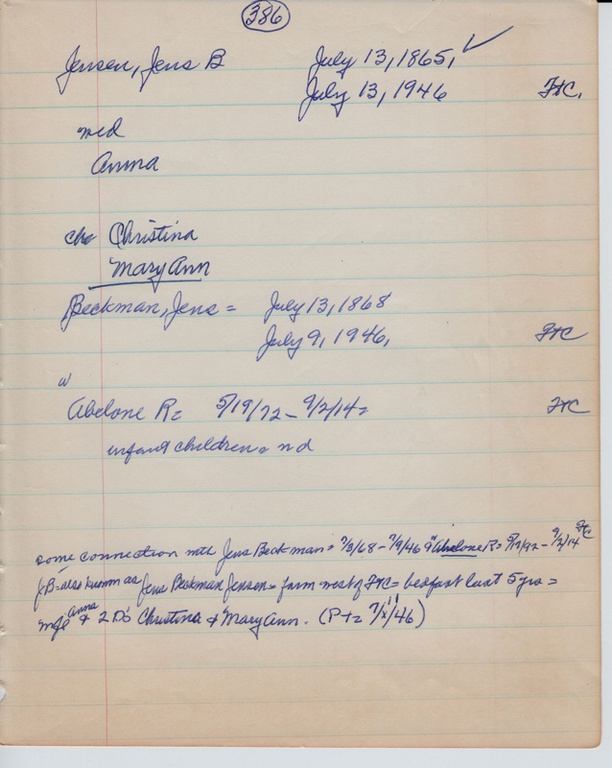 386
Jensen, Jens B July 13, 1865,
July 13, 1946 FtC.
md
Anna
ch Christina
Mary Ann
Beckman, Jens = July 13, 1868
July 9, 1946, FtC
w
Abelone R= 5/19/72 - 9/2/14= FtC
infant children = nd
some connection with Jens Beckman = 7/3/68 - 7/9/46 "Abelone R= - 9/2/14 FtC
JB also known as Jens Beckman Jensen = farm west of FtC = bedfast last 5 yrs =
wife Anna & 2 D's Christina & Mary Ann. (Pt= /46)